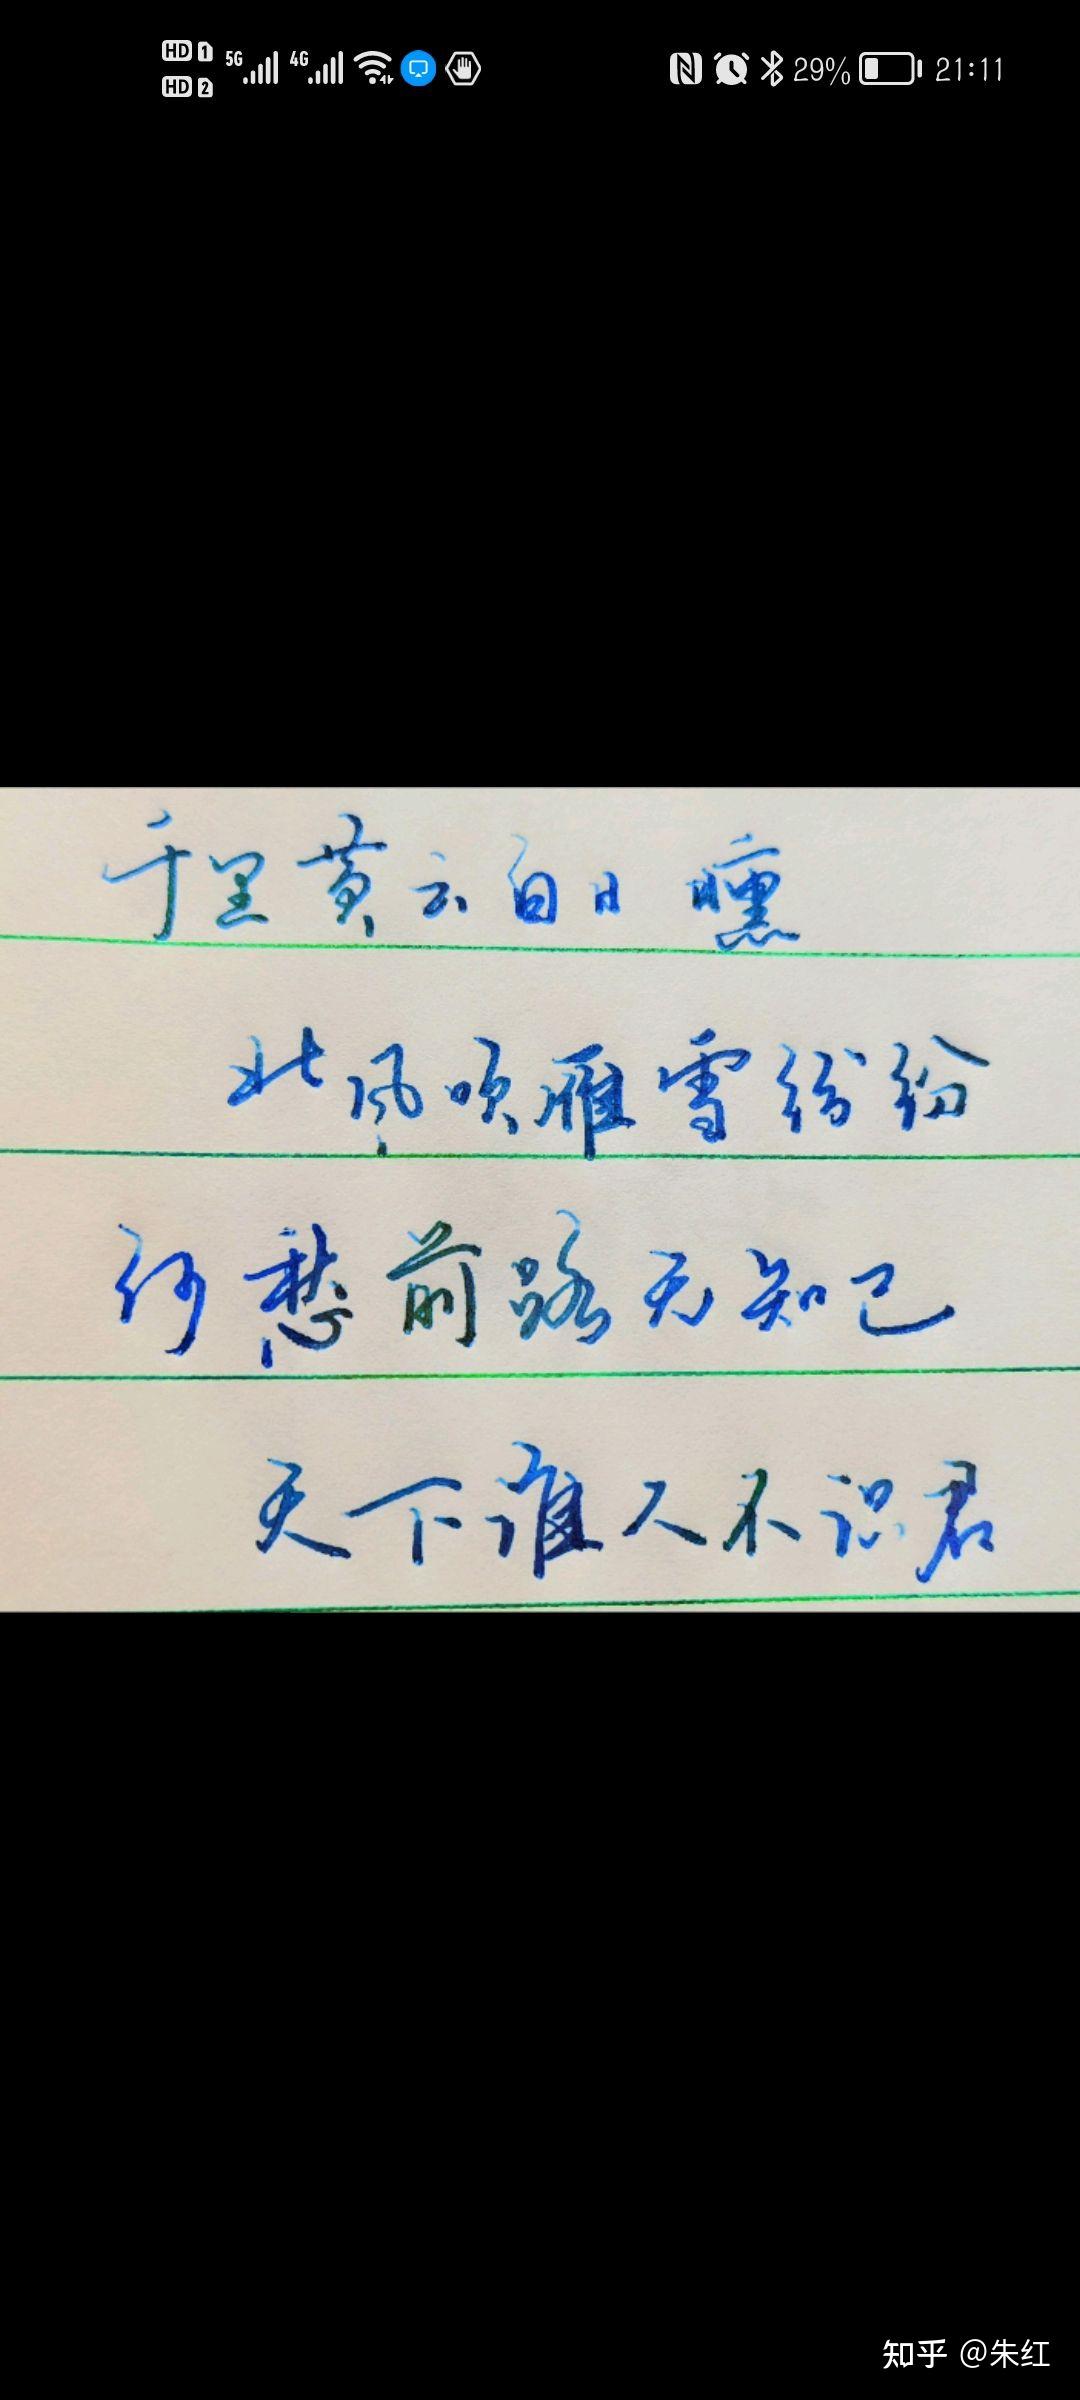 HD 1 5G 4G 29% 21:11
HD 2
千里黄云白日曛
北风吹雁雪纷纷
何愁前路无知己
天下谁人不识君
知乎 @朱红